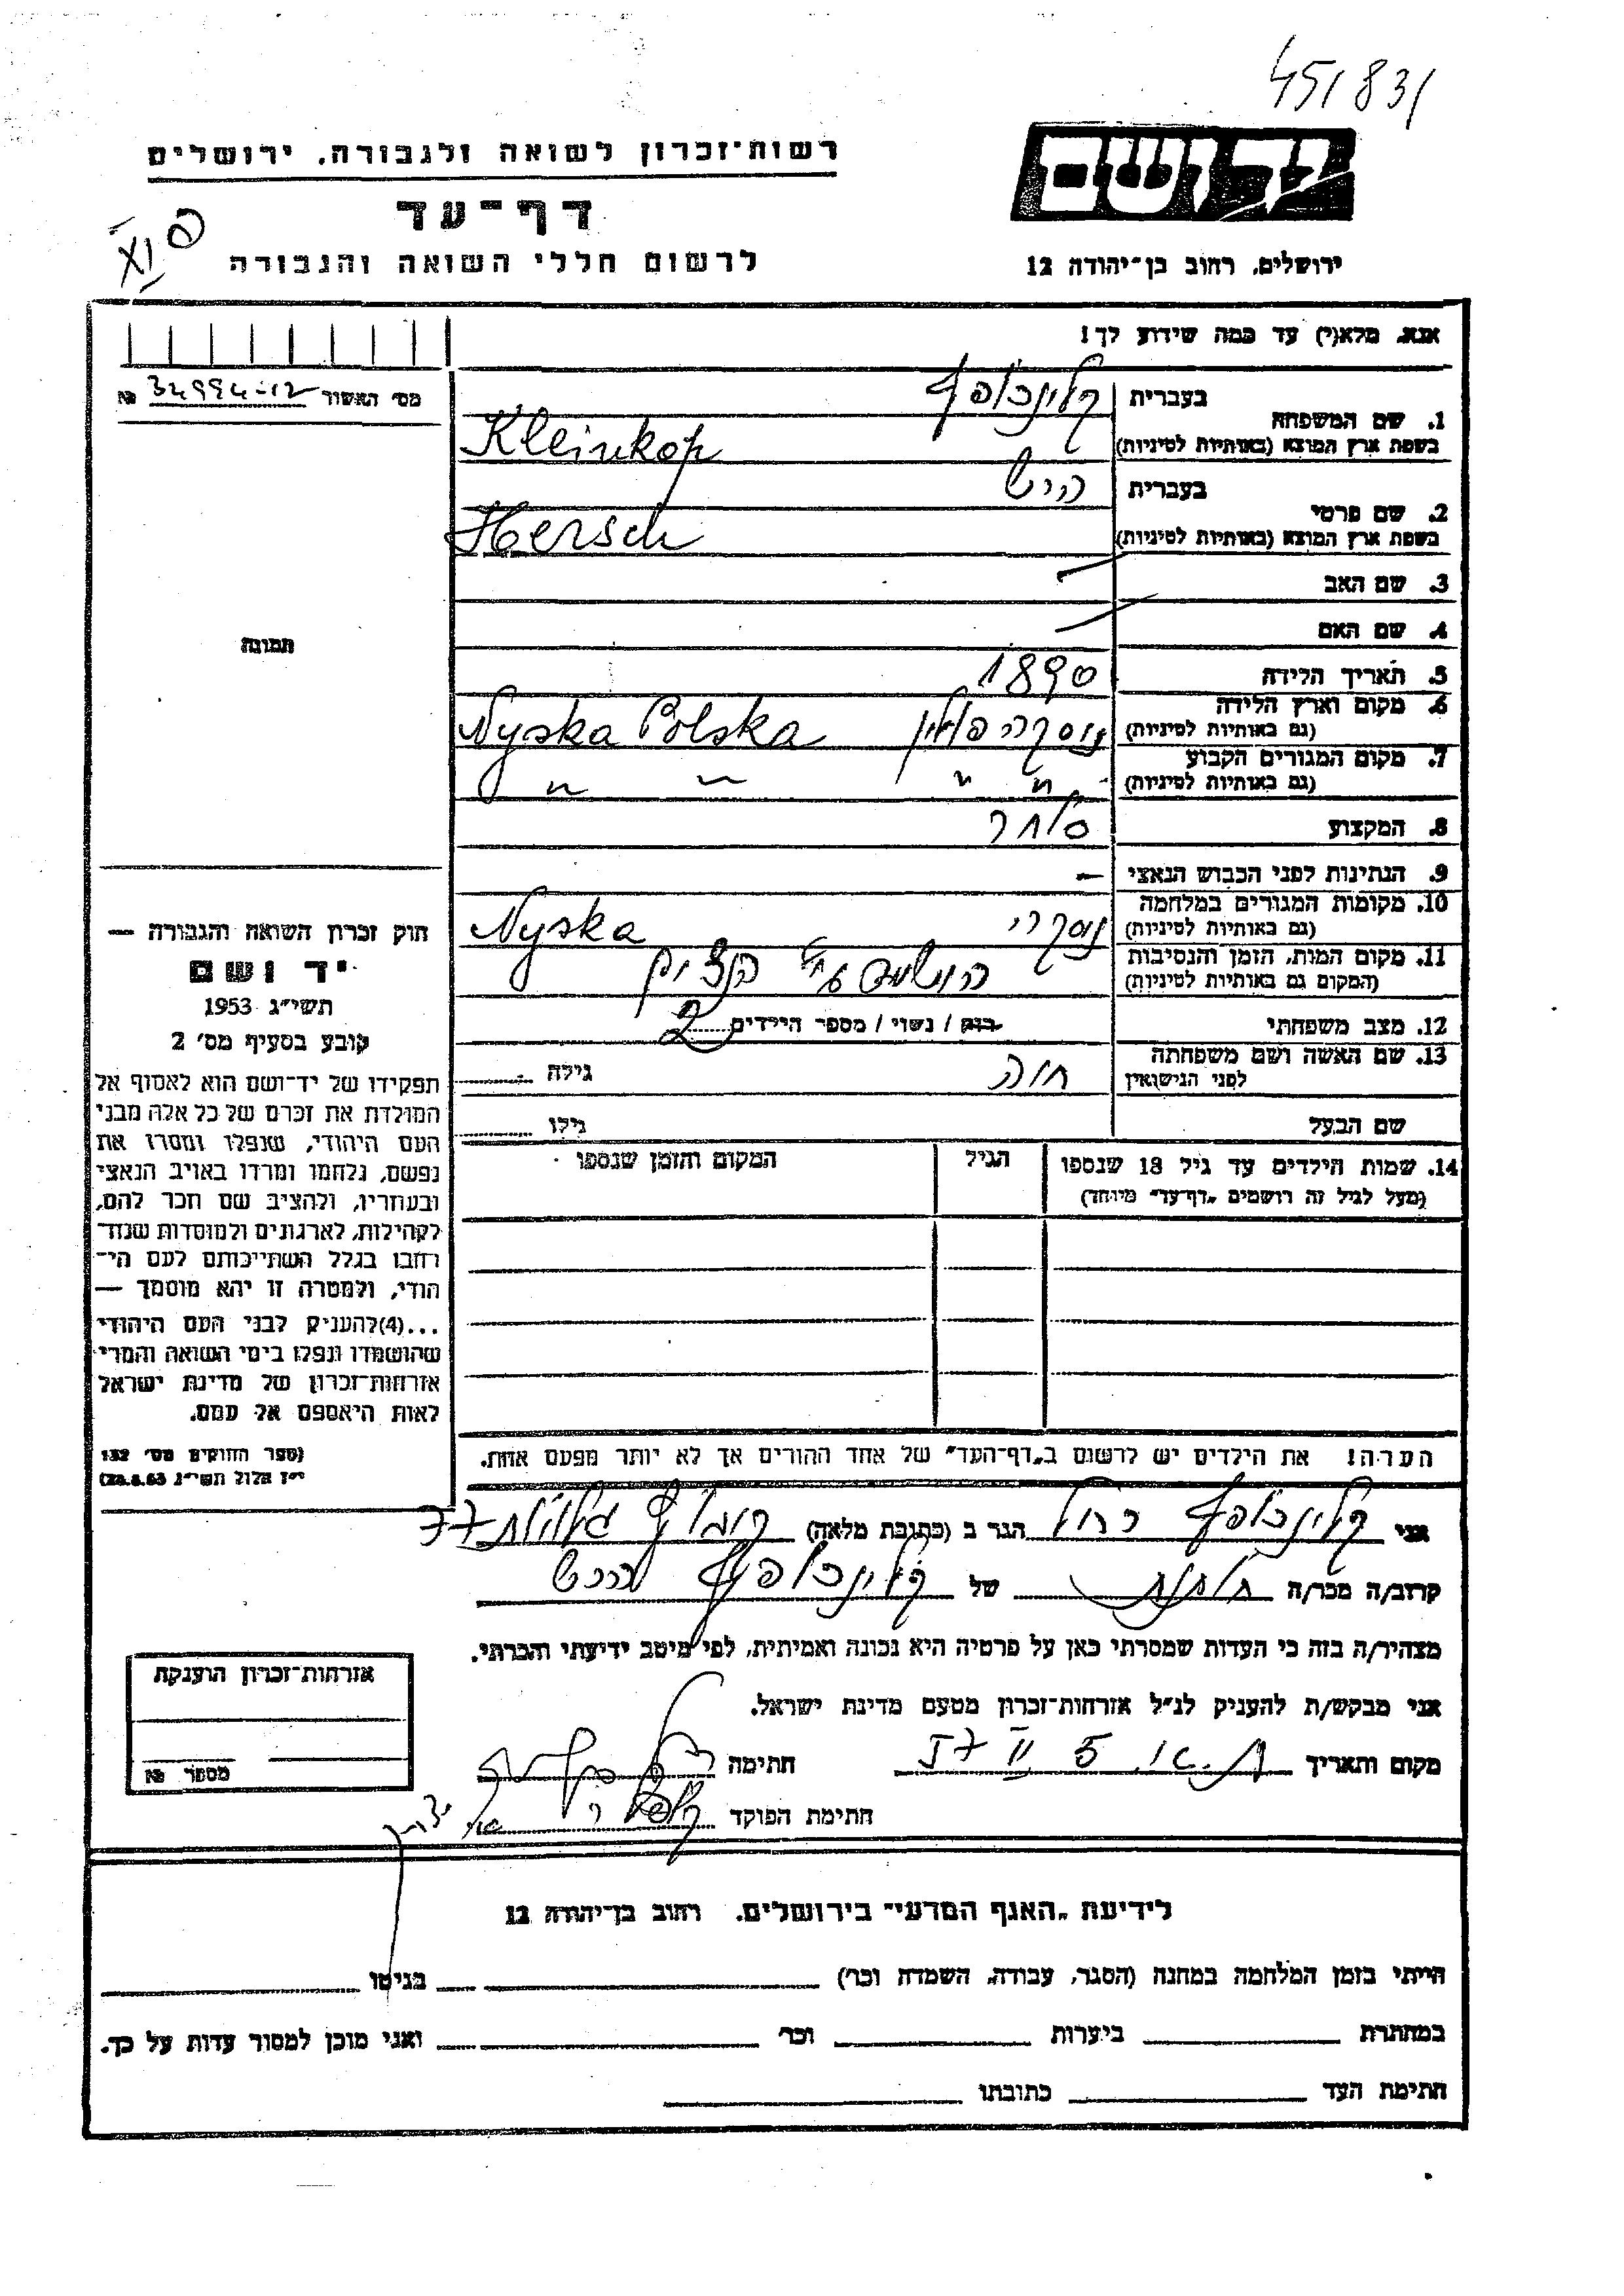 451831
רשות־זכרון לשואה ולגבורה, ירושלים
יד ושם
דף־עד
לרשום חללי השואה והגבורה
ירושלים, רחוב בן־יהודה 12
אנא, מלא(י) עד כמה שידוע לך!
מס׳ האשור 34994-12 №
1. שם המשפחה
בעברית קלינכופף
בשפת ארץ המוצא (באותיות לטיניות) Kleinkop
2. שם פרטי
בעברית הירש
בשפת ארץ המוצא (באותיות לטיניות) Hersch
3. שם האב —
4. שם האם —
תמונה
5. תאריך הלידה 1890
6. מקום וארץ הלידה
(גם באותיות לטיניות) ניסקה פולין Nyska Polska
7. מקום המגורים הקבוע
(גם באותיות לטיניות) " " " "
8. המקצוע סוחר
9. הנתינות לפני הכבוש הנאצי —
10. מקומות המגורים במלחמה
(גם באותיות לטיניות) Nyska
11. מקום המות, הזמן והנסיבות
(המקום גם באותיות לטיניות) הושמד ע״י הנצים
12. מצב משפחתי רווק / נשוי / מספר הילדים 2
13. שם האשה ושם משפחתה
לפני הנישואין חוה גילה
שם הבעל גילו
14. שמות הילדים עד גיל 18 שנספו הגיל המקום והזמן שנספו
(מעל לגיל זה רושמים „דף־עד״ מיוחד)
חוק זכרון השואה והגבורה —
יד ושם
תשי״ג 1953
קובע בסעיף מס׳ 2
תפקידו של יד־ושם הוא לאסוף אל
המולדת את זכרם של כל אלה מבני
העם היהודי, שנפלו ומסרו את
נפשם, נלחמו ומרדו באויב הנאצי
ובעוזריו, ולהציב שם וזכר להם,
לקהילות, לארגונים ולמוסדות שנח־
רחבו בגלל השתייכותם לעם הי־
הודי, ולמטרה זו יהא מוסמך —
...(4)להעניק לבני העם היהודי
שהושמדו ונפלו בימי השואה והמרי
אזרחות־זכרון של מדינת ישראל
לאות היאספם אל עמם.
(ספר החוקים מס׳ 132
י״ז אלול תשי״ג 28.8.53)
הערה! את הילדים יש לרשום ב„דף־העד״ של אחד ההורים אך לא יותר מפעם אחת.
אני קלינכופף רחל הגר ב (כתובת מלאה) 77
קרוב/ה מכר/ה של קלינכופף הירש
מצהיר/ה בזה כי העדות שמסרתי כאן על פרטיה היא נכונה ואמיתית, לפי מיטב ידיעתי והכרתי.
אני מבקש/ת להעניק לנ״ל אזרחות־זכרון מטעם מדינת ישראל.
מקום ותאריך ת.א. 5 II 57 חתימה
חתימת הפוקד
אזרחות־זכרון הוענקת
מספר №
לידיעת „האגף המדעי״ בירושלים, רחוב בן־יהודה 12
הייתי בזמן המלחמה במחנה (הסגר, עבודה, השמדה וכר׳) בגיטו
במחתרת ביערות וכר׳ ואני מוכן למסור עדות על כך.
חתימת העד כתובתו